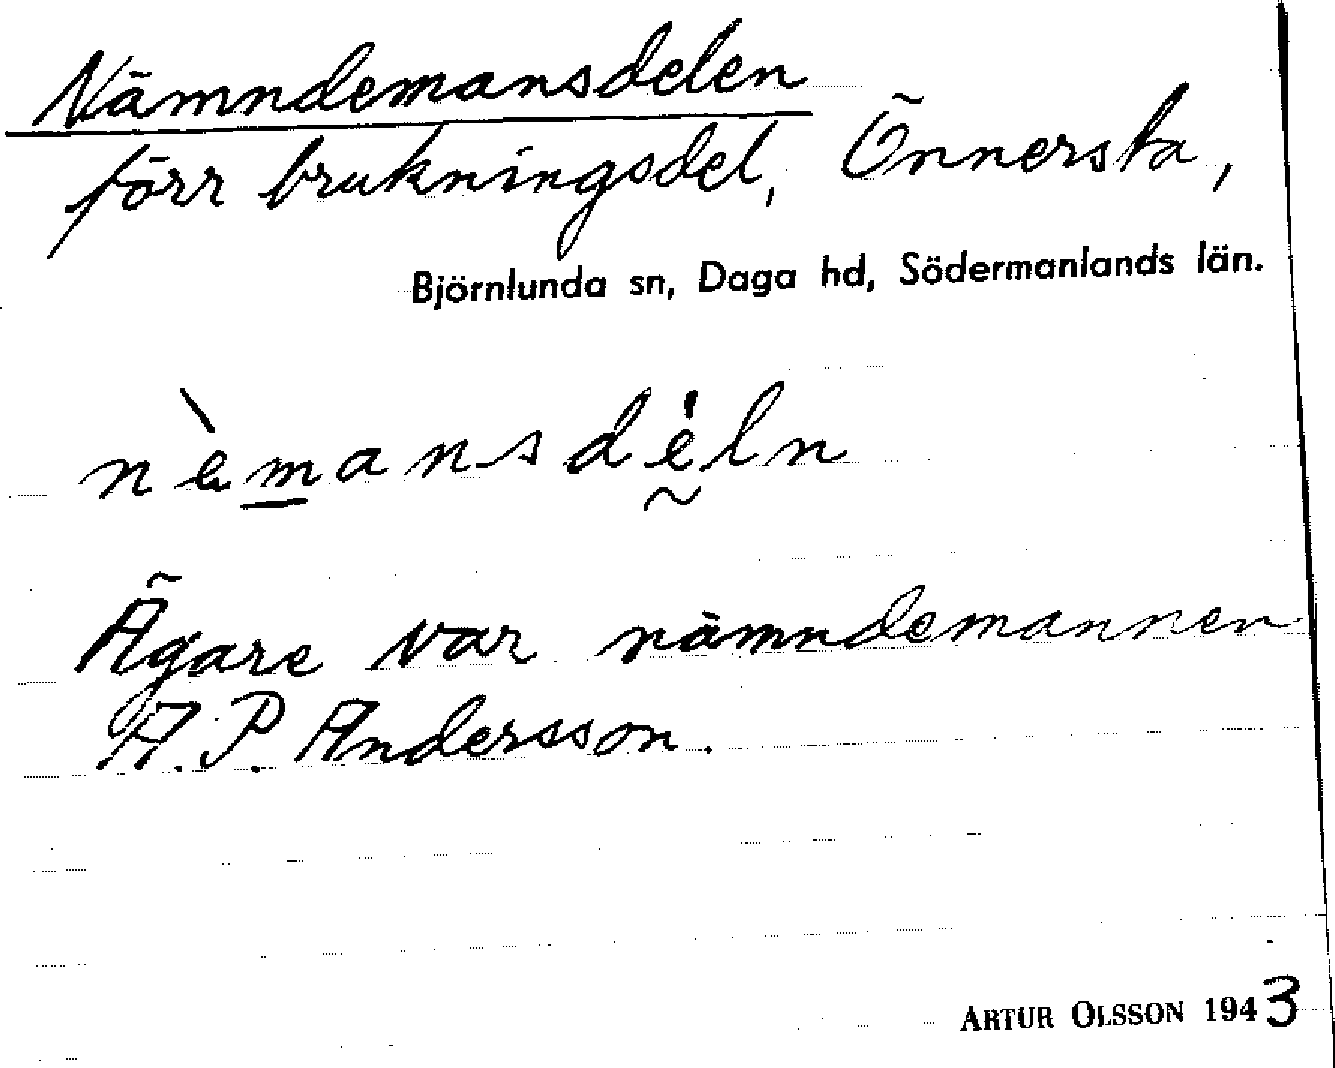 Nämndemansdelen
förr brukningsdel, Önnersta,
Björnlunda sn, Daga hd, Södermanlands län.
nèmansdéln
Ägare var nämndemannen
A. P. Andersson.
ARTUR OLSSON 1943